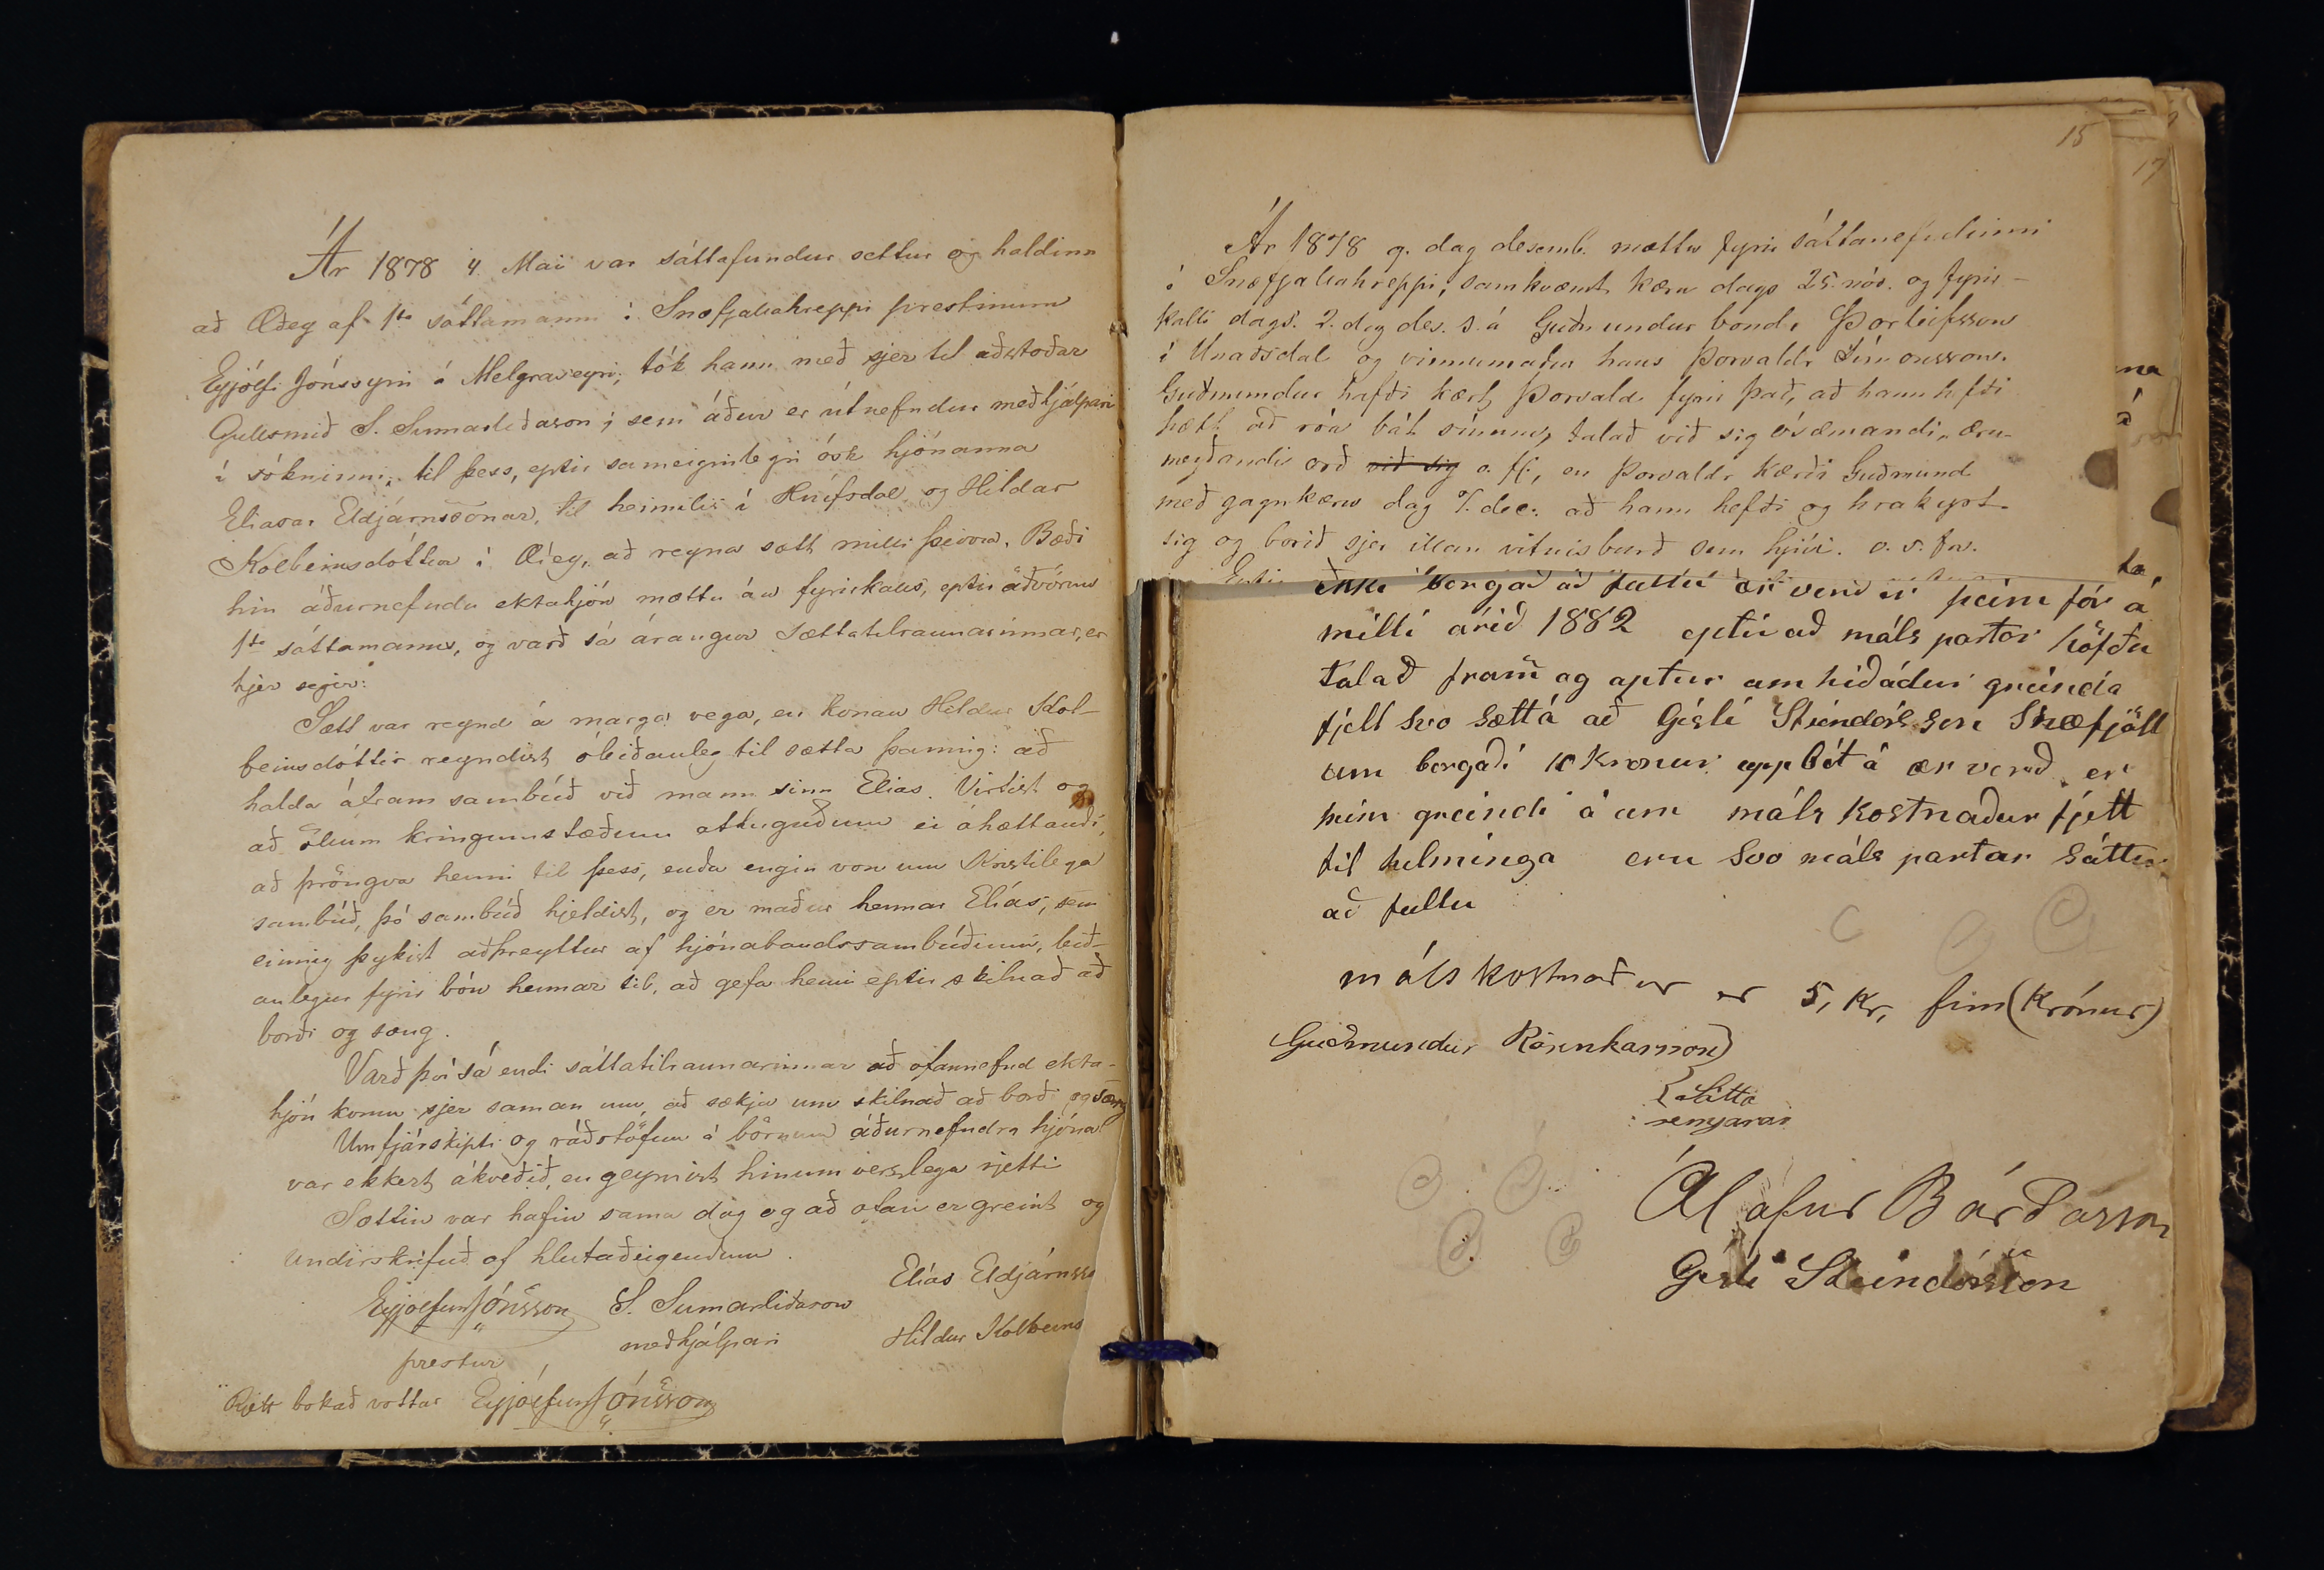 Ár 1878 4. Mai var sáttafundur settur og haldinn
að Æðey af 1ta sáttamanni í Snæfjallahreppi prestinum
Eyjólfi Jónssyni á Melgraseyri, tók hann með sjer til aðstoðar
Gullsmið S. Sumarliðason, sem áður er útnefndur meðhjálpari
í sókninni, til þess, eptir sameiginlegri ósk hjónanna
Eliasar Eldjárnssonar, til heimilis í Hnífsdal og Hildar
Kolbeinsdóttur í Æðey, að reyna sætt milli þeirra. Bæði
hin áðurnefndu ektahjón mættu án fyrirkalls, eptir aðvörun
1ta sáttamanns, og varð sá árangur sættatilraunarinnar, er
hjer segir:
Sætt var reynd á marga vega, en konan Hildur Kol-
beinsdóttir reyndist óleiðanleg til sætta þannig: að
halda áfram sambúð við mann sinn Elias. Virtist og
að öllum kringumstæðum athuguðum ei áhættandi,
að þröngva henni til þess, enda engin von um Kristilega
sambúð, þó sambúð hjeldist, og er maður hennar Elías, sem
einnig þykist aðþreyttur af hjónabandssambúðinni, leið-
anlegur fyrir bón hennar til, að gefa henni eptir skilnað að
borði og sæng.
Varð því sá endi sáttatilraunarinnar að ofannefnd ekta-
hjón komu sjer saman um, að sækja um skilnað að borði og sæng
Um fjárskipti og ráðstöfun á börnum áðurnefndra hjóna
var ekkert ákveðið, en geymist hinum verslega rjetti
Sættin var hafin sama dag og að ofan er greint og
undirskrifuð af hlutaðeigendum.
Eyjólfur Jónsson S. Sumarliðason Elías Eldjárnsso
prestur meðhjálpari Hildur Kolbeins
Rjett bókað vottar Eyjólfur Jónsson
15
17
Ár 1878 9. dag desemb. mættu fyrir sáttanefndinni
í Snæfjallahreppi, samkvæmt kæru dags 25. nóv. og fyrir-
kalli dags. 2. dag des. s. á Guðmundur bondi Þorleifsson
í Unaðsdal og vinnumaður hans Þorvaldr Símonsson.
Guðmundur hafði kært Þorvald fyrir það, að hann hefði
hætt að róa bát sínum, talað við sig ósæmandi, æru-
meyðandi orð við sig o. fl., en Þorvaldr kærði Guðmund
með gagnkæru dag dec. að hann hefði og hrakyrt
sig og borið sjer illan vitnisburð sem hjúi. o. s. frv.
Eptir
ekki borgað að fullu ær verð er þeim fór á
milli árið 1882 eptir að máls partar höfðu
talað fram og aptur um hið áður greinda
fjell svo sætt á að Gísli Steindórsson Snæfjöll
um borgaði 10 kronur uppbót á ær verð er
hinn greindi á um máls kostnaður fjell
til helminga eru svo máls partar sáttir
að fullu
máls kostnaður er 5, kr, fim (Krónur)
Guðmundur Rósinkarsson
Sátta
semjarar
Ólafur Bárðarson
Gísli Steindórsson